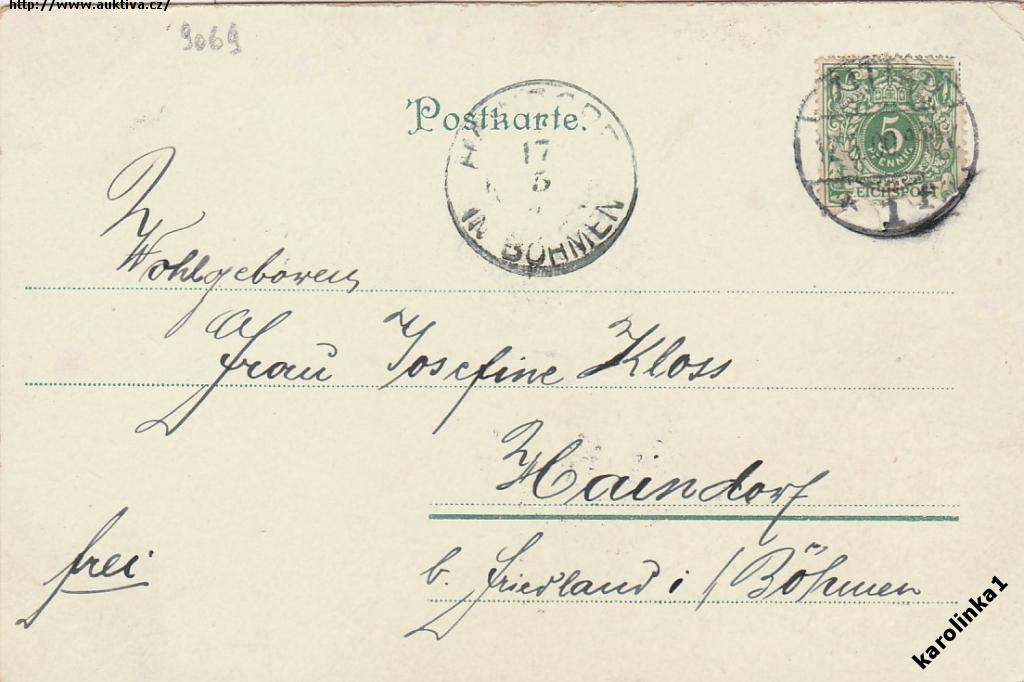 http://www.auktiva.cz/
9069
Postkarte.
17
5
IN BÖHMEN
5
PFENNIG
REICHSPOST
1
Wohlgeboren
Frau Josefine Kloss
Haindorf
frei
b. Friedland i/Böhmen
karolinka1